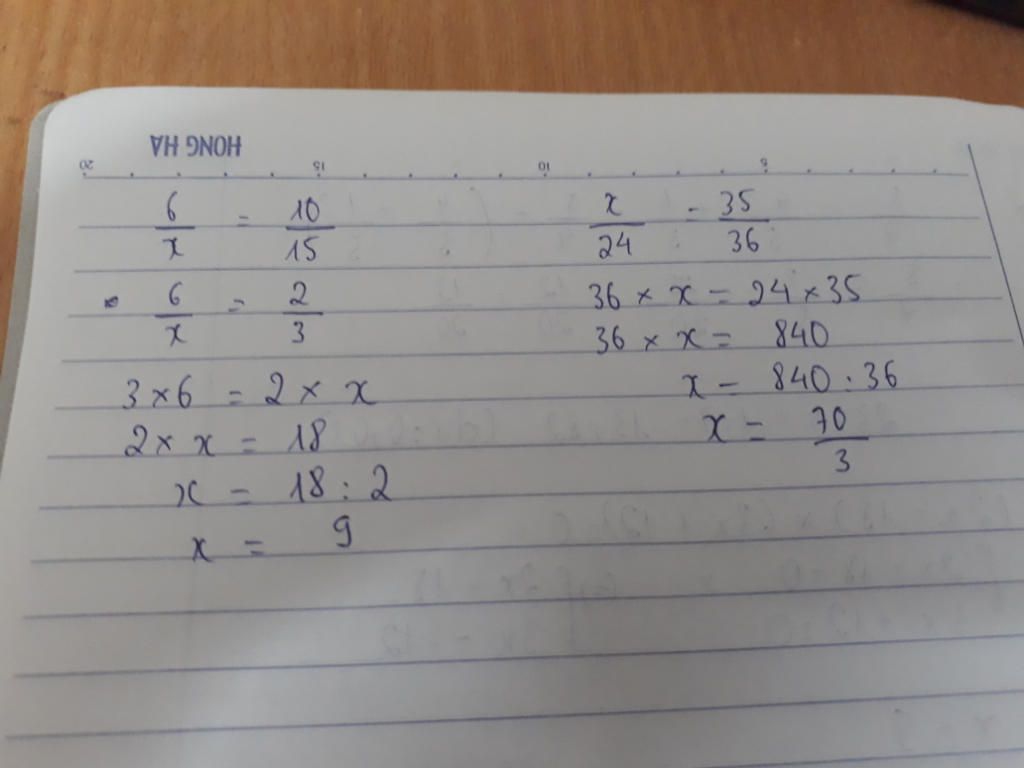 HONG HA
20 15 10 5
6/x = 10/15
6/x = 2/3
3 × 6 = 2 × x
2 × x = 18
x = 18 : 2
x = 9
x/24 = 35/36
36 × x = 24 × 35
36 × x = 840
x = 840 : 36
x = 70/3